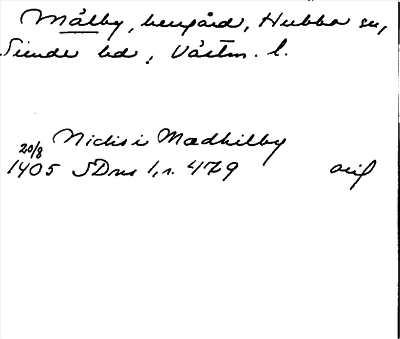 Målby, herrgård, Hubbo sn,
Siende hd, Västm. l.
20/8 Niclis i Madhilby
1405 SDns 1, s. 479 orig